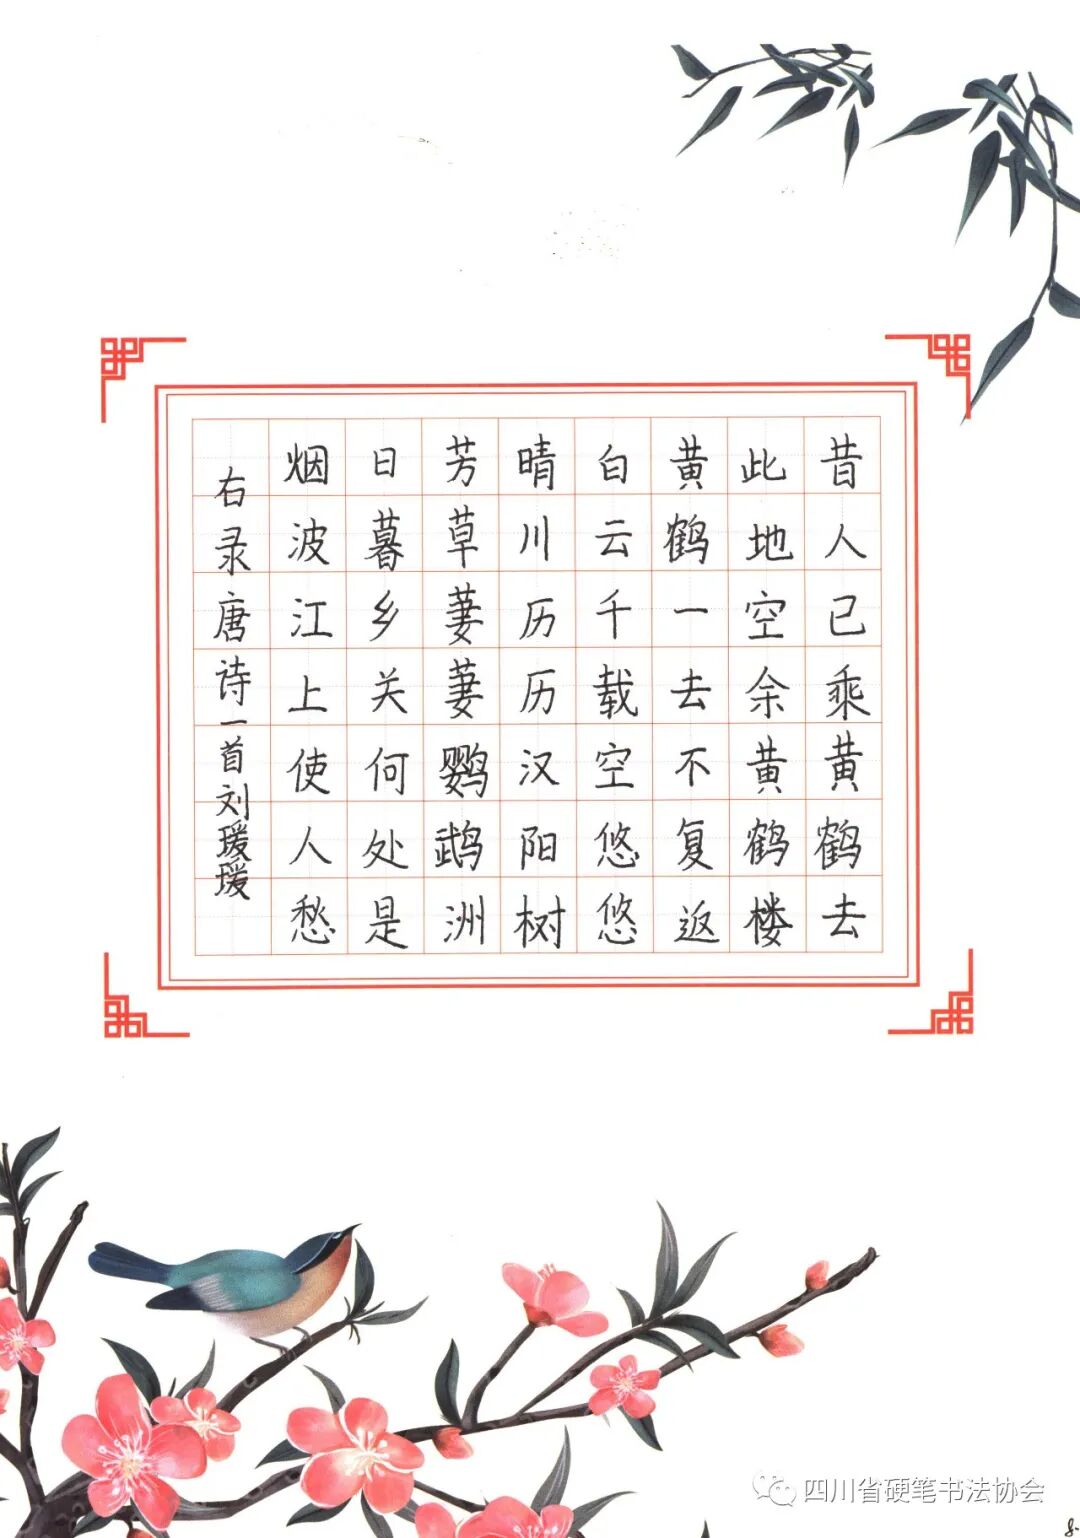 昔人已乘黄鹤去
此地空余黄鹤楼
黄鹤一去不复返
白云千载空悠悠
晴川历历汉阳树
芳草萋萋鹦鹉洲
日暮乡关何处是
烟波江上使人愁
右录唐诗一首刘瑗瑗
四川省硬笔书法协会